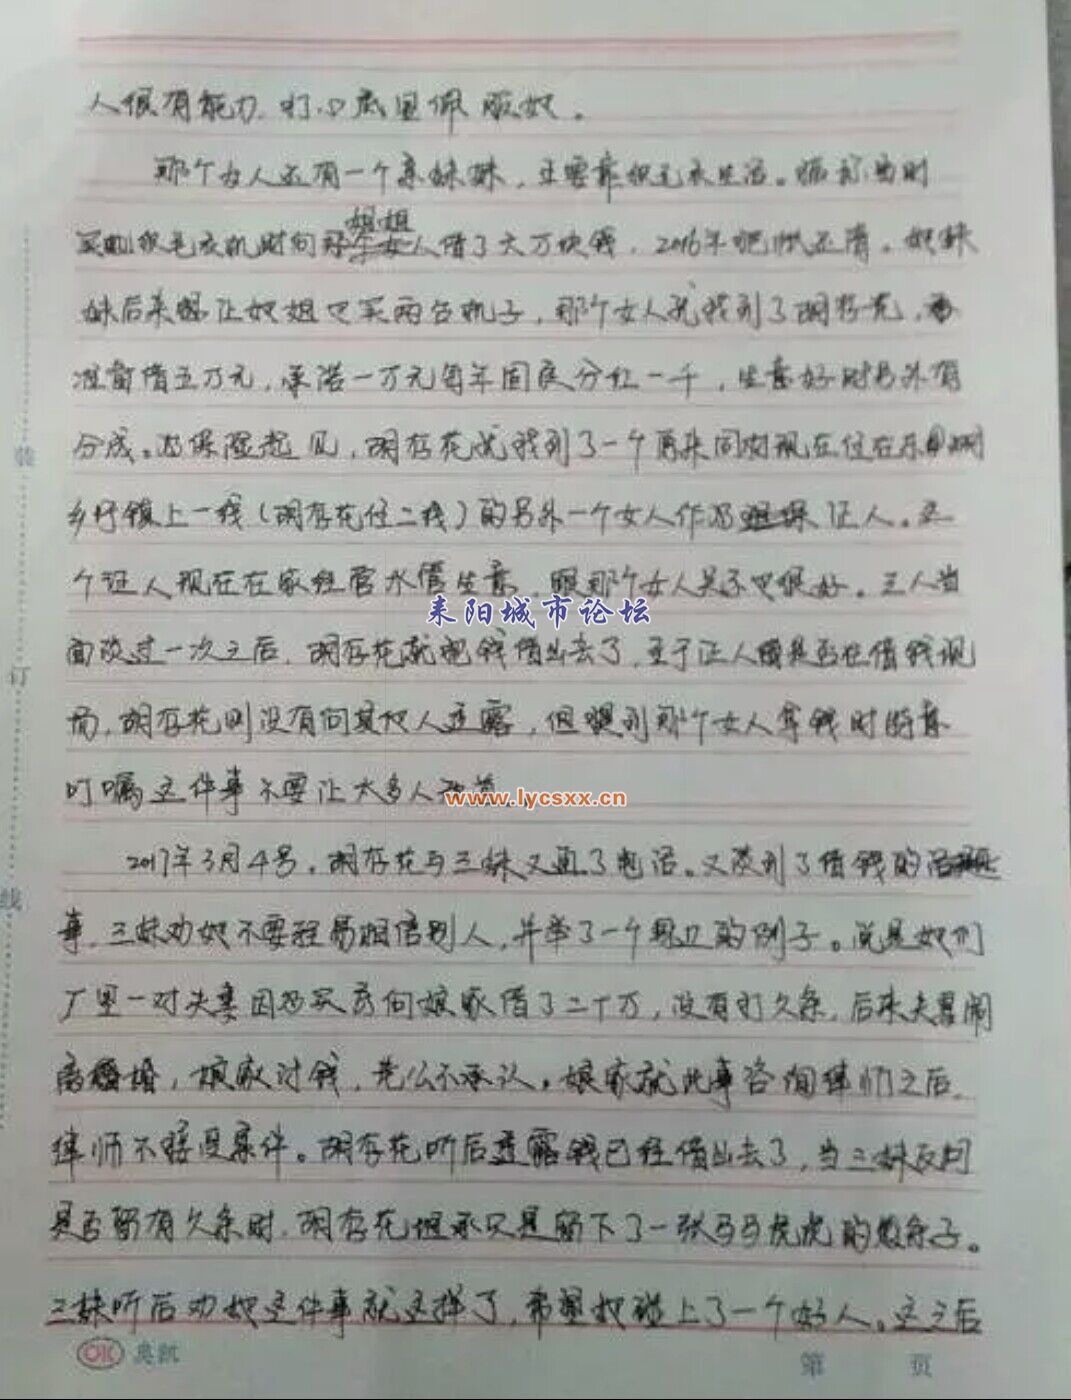 人很有能力，打心底里佩服她。
那个女人还有一个亲妹妹，主要靠织毛衣生活。据称当时
姐姐
买织毛衣机时向那个女人借了六万块钱，2016年把帐还清。她妹
妹后来让她姐也买两台机子，那个女人就找到了胡存花，
准备借五万元，承诺一万元每年固定分红一千，生意好时另外有
分成。为保险起见，胡存花就找到了一个原来同村现在住在东
乡圩镇上一栈（胡存花住二栈）的另外一个女人作为证人。这
个证人现在在家经营水传生意，跟那个女人关系也很好。三人当
面谈过一次之后，胡存花就把钱借出去了，至于证人是否在借钱现
场，胡存花则没有向其他人透露，但提到那个女人拿钱时曾
叮嘱这件事不要让太多人知道。
2017年3月4号，胡存花与三妹又通了电话。又谈到了借钱的
事，三妹劝她不要轻易相信别人，并举了一个身边的例子。说是她们
厂里一对夫妻因为买房向娘家借了二十万，没有打欠条，后来夫妻闹
离婚，娘家讨钱，老公不承认。娘家就此事咨询律师之后，
律师不接没案件。胡存花听后透露钱已经借出去了，当三妹反问
是否留有欠条时，胡存花坦承只是留下了一张马马虎虎的数条子。
三妹听后劝她这件事就这样了，希望她碰上了一个好人。这之后
耒阳城市论坛
www.lycsxx.cn
装
订
线
OK 奥凯
第 页